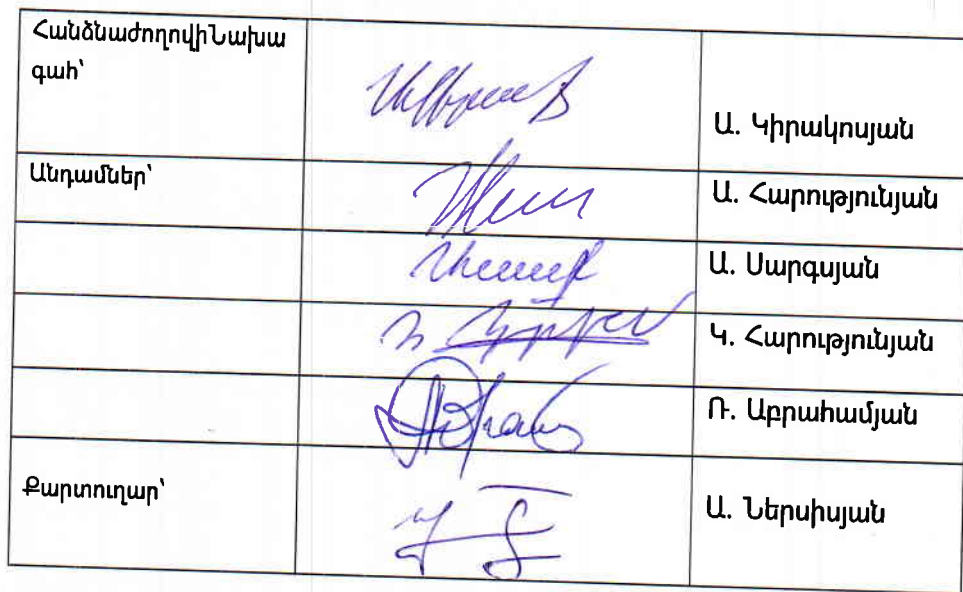 ՀանձնաժողովիՆախա
գահ՝
Ա. Կիրակոսյան
Անդամներ՝
Ա. Հարությունյան
Ա. Սարգսյան
Կ. Հարությունյան
Ռ. Աբրահամյան
Քարտուղար՝
Ա. Ներսիսյան